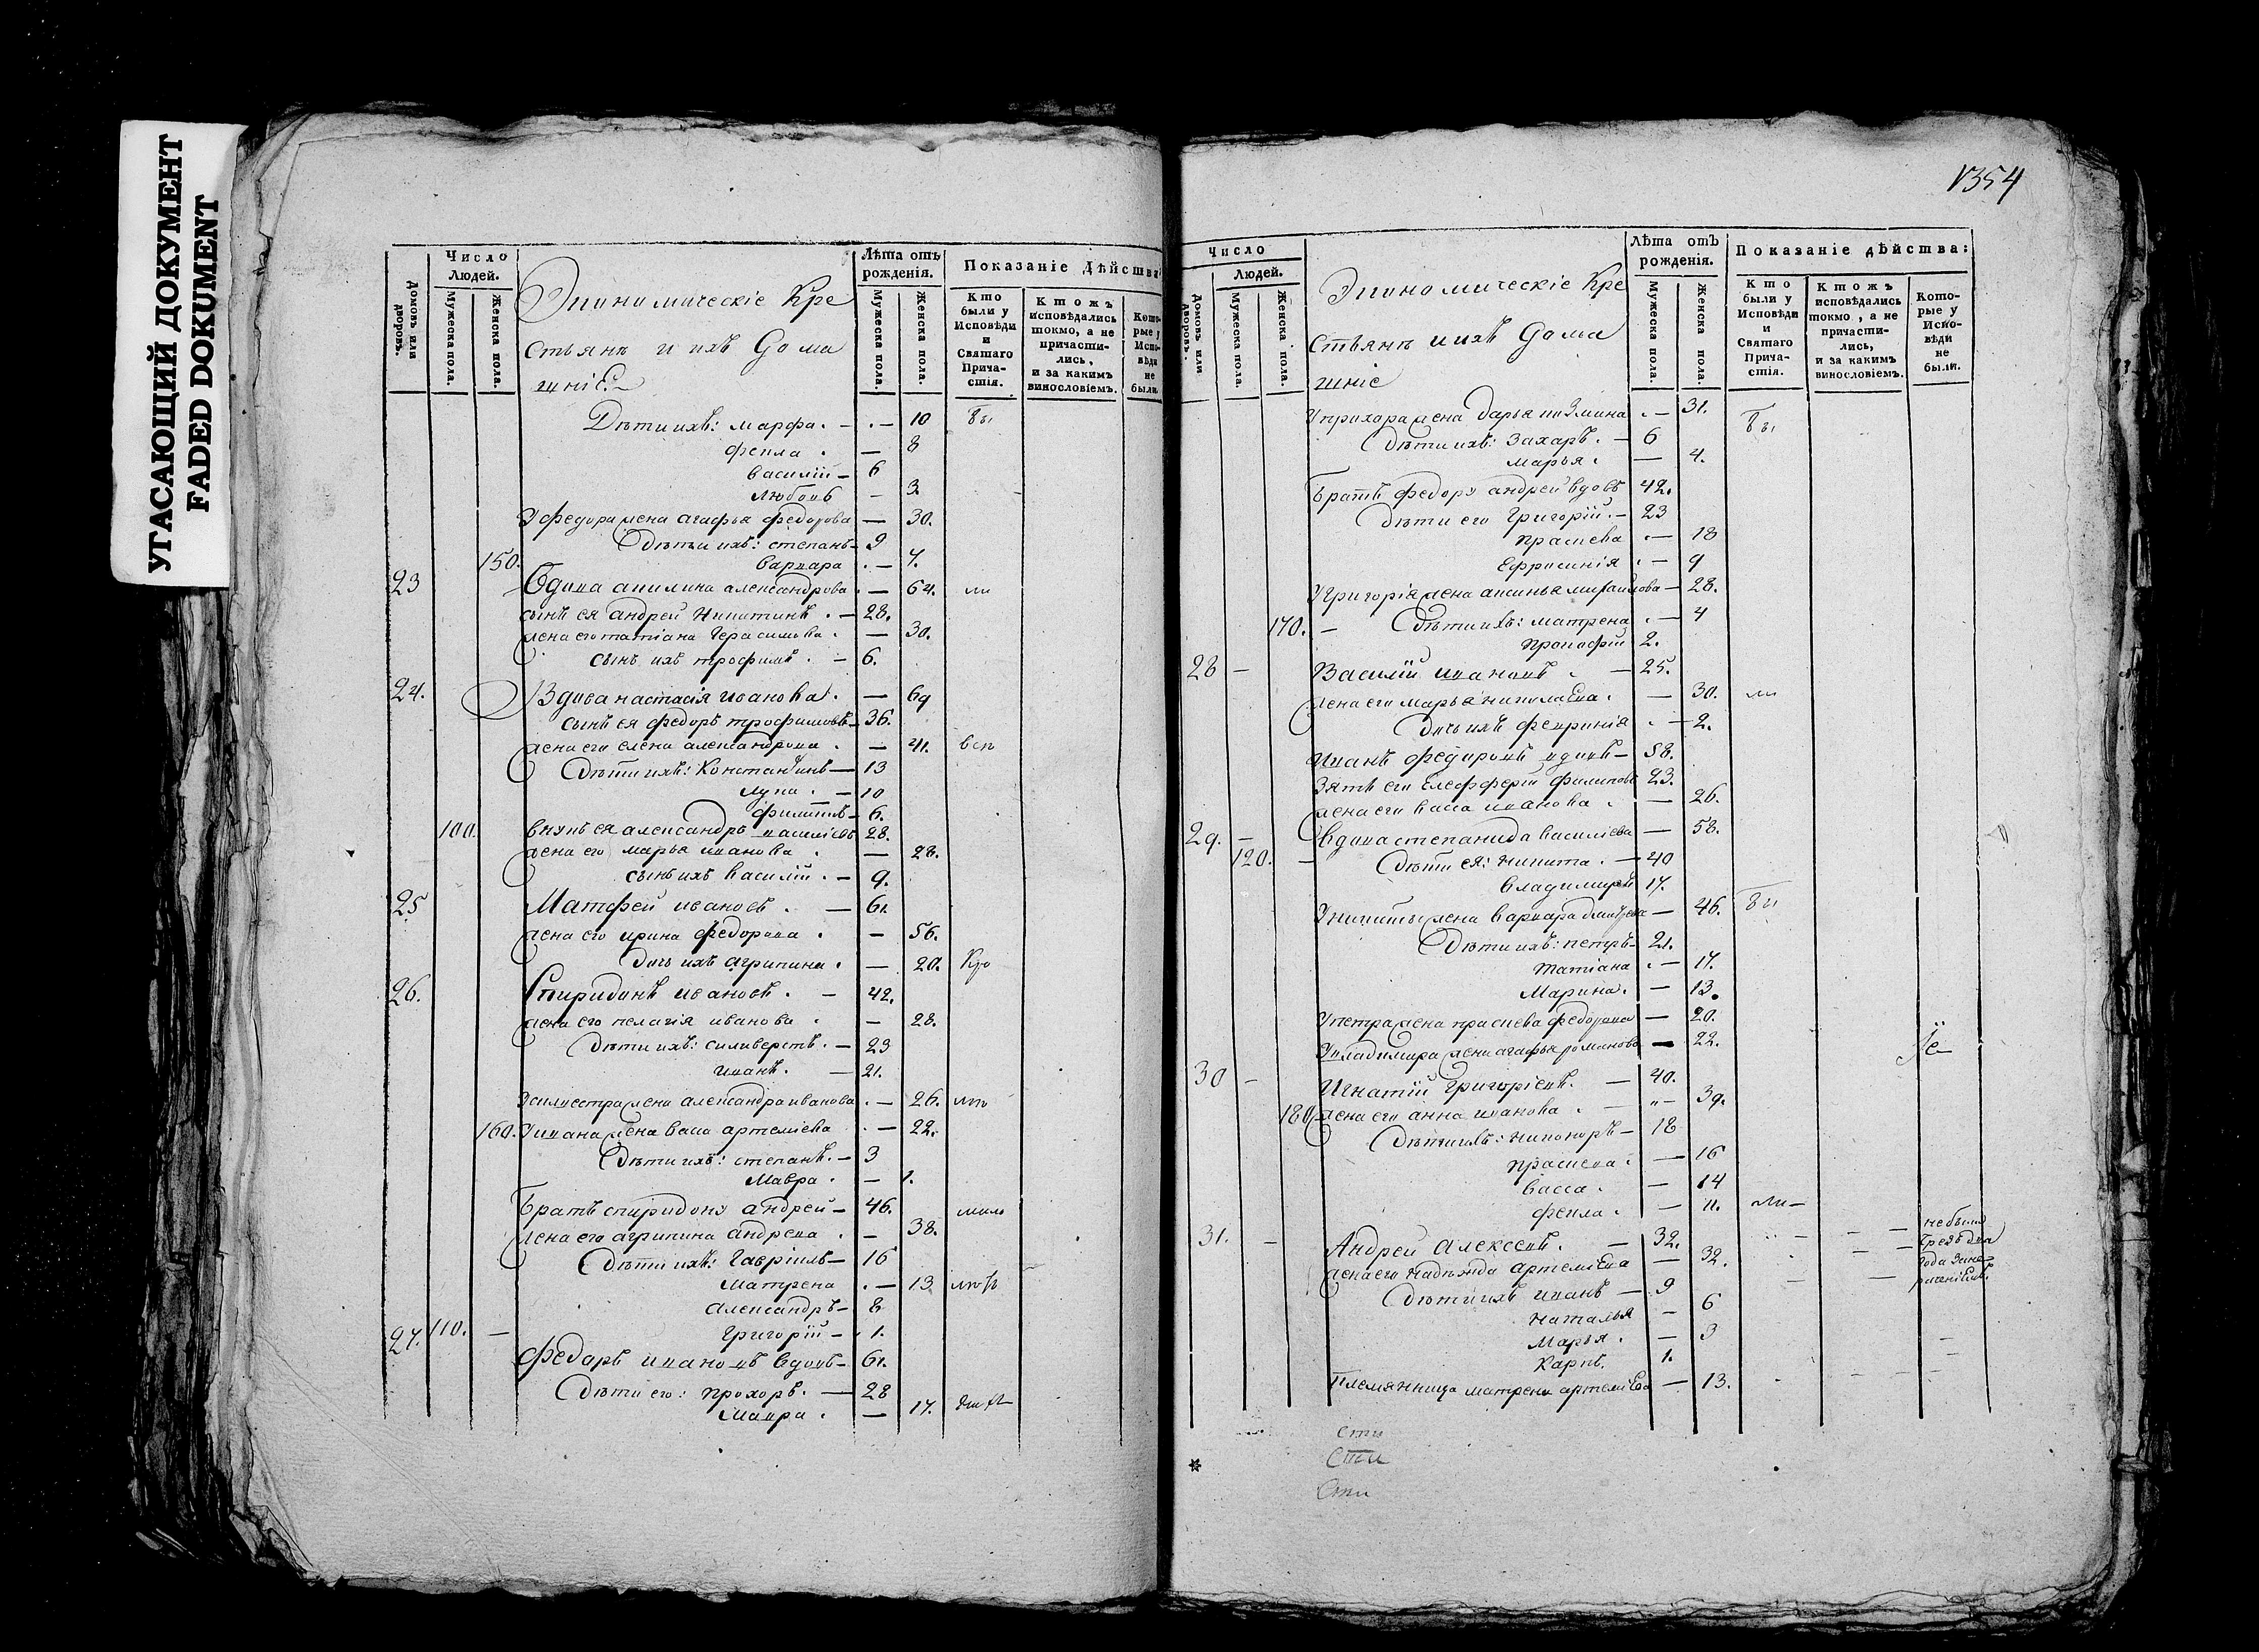 УГАСАЮЩИЙ ДОКУМЕНТ
FADED DOKUMENT
Число
Людей.
Домовъ или дворовъ.
Мужеска пола.
Женска пола.
Экономическіе Кре
стьянъ и ихъ дома
шніе
Лѣта отъ
рожденія.
Мужеска пола.
Женска пола.
Показаніе Дѣйства
Кто были у Исповѣди и Святаго Прича-стія.
Ктожъ исповѣдались токмо, а не причасти-лись, и за какимъ винословіемъ.
Кото-рые у Испо-вѣди не были
Дѣти ихъ: марфа. — 10 бы
фекла. — 8
василій — 6
любовь — 3
У федора жена агафья федорова — 30.
Дѣти ихъ: степанъ — 9
150. варвара — 7.
23 Вдова акилина александрова — 64. ли
сынъ ея андрей никитинъ — 28.
жена его татіана герасимова — 30.
сынъ ихъ трофимъ — 6.
24. Вдова настасія иванова — 69
сынъ ея федоръ трофимовъ — 36.
жена его елена александрова — 41. всѣ
Дѣти ихъ: Константинъ — 13
лука — 10
филиппъ — 6.
100. внукъ ея александръ василіевъ 28.
жена его марья иванова — 28.
сынъ ихъ василій — 9.
25 Матфей ивановъ — 61.
жена его ирина федорова — 56.
дочь ихъ агрипина — 20. Кро
26. Спиридонъ ивановъ — 42.
жена его пелагія иванова — 28.
Дѣти ихъ: силиверстъ — 23
иванъ. — 21.
У силвестра жена александра иванова — 26. мѣ
160. У ивана жена васа артеміева — 22.
Дѣти ихъ: степанъ. — 3
Мавра. — 1.
Братъ спиридону андрей — 46.
жена его агрипина андреева — 38.
Дѣти ихъ: Гавріилъ — 16
Матрена — 13
александръ — 8
27. 110. — григорій — 1.
федоръ ивановъ вдовъ — 61.
Дѣти его: прохоръ. — 28
Мавра. — 17.
1354
Число
Людей.
Домовъ или дворовъ.
Мужеска пола.
Женска пола.
Экономическіе Кре
стьянъ и ихъ дома
шніе
Лѣта отъ
рожденія.
Мужеска пола.
Женска пола.
Показаніе дѣйства:
Кто были у Исповѣди и Святаго Прича-стія.
Ктожъ исповѣдались токмо, а не причасти-лись, и за какимъ винословіемъ.
Кото-рые у Испо-вѣди не были.
У прохора жена дарья — 31. бы
Дѣти ихъ: Захаръ. — 6
марья. — 4.
Братъ федору андрей вдовъ 42.
дѣти его григорій. — 23
праскева — 18
Ефросинія — 9
У григорія жена аксинья михайлова — 28.
170. — Дѣти ихъ: матрена — 4
прокофій 2.
28 — Василій ивановъ — 25.
жена его марья николаева — 30. ли
дочь ихъ февронія — 2.
Иванъ федоровъ вдовъ — 58.
Зять его Елефферій филиповъ 23.
жена его васа иванова — 26.
29. — Вдова степанида василіева — 58.
120. — Дѣти ея: никита. — 40
владимиръ 17.
У никиты жена варвара дмитрева — 46. бы
Дѣти ихъ: петръ — 21.
татіана — 17.
Марина. — 13.
У петра жена праскева федорова — 20.
У владимира жена агафья романова — 22.
30 — Игнатій григоріевъ. — 40.
180. жена его анна иванова — 39.
Дѣти ихъ: никоноръ — 18
праскева. — 16
васса. — 14
фекла. — 11. ли —
31. — Андрей Алексеевъ. — 32. не были
жена его надежда артеміева — 32. чрезъ два
Дѣти ихъ иванъ — 9 года
наталья — 6
Марья. — 3
Карпъ. 1.
племянница матрена артеміева — 13.
сти
Сти
Сти